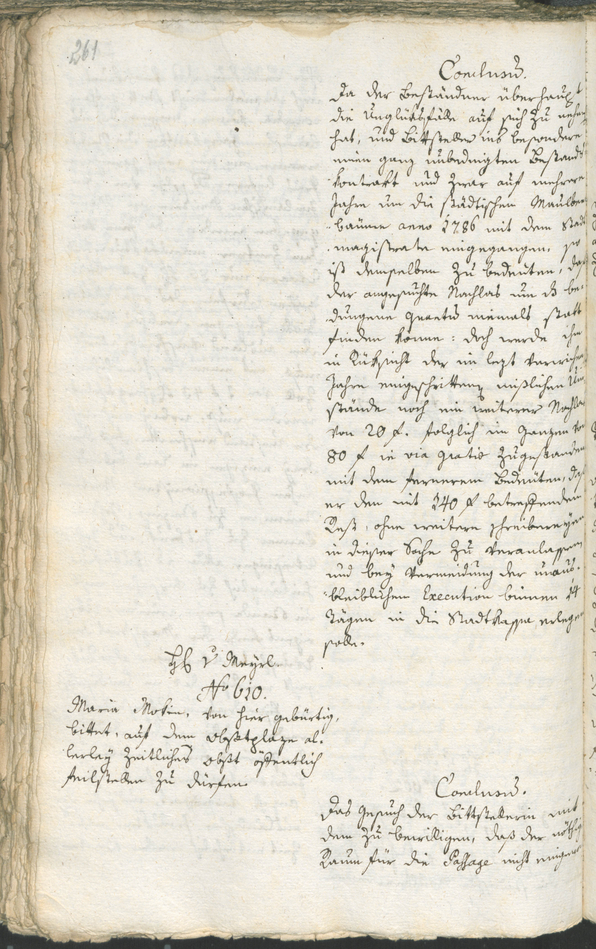 261
Conclusũ.
Da der Beständner überhaupt
die Unglüksfälle auf sich zu nehmen
hat, und Bittsteller ins besondere
einen ganz unbedingten Bestands
kontrakt und zwar auf mehrere
Jahre um die städtischen Maulbeer
bäume anno 1786 mit dem Stadt
magistrate eingegangen, so
ist demselben zu bedeuten, daß
der angesuchte Nachlas um die be-
dungene quantũ niemals statt
finden könne: doch werde ihm
in Rüksicht der im lezt verwichenen
Jahre eingeschrittenen mißlichen Um
stände noch ein weiterer Nachlas
von 20 f. folglich im ganzen von
80 f in via gratiæ zugestanden
mit dem fernerem Bedeuten, daß
er den mit 240 f betreffenden
Rest, ohne weitere Schreibereyen
in dieser Sache zu veranlassen
und bey Vermeidung der unaus-
bleiblichen Execution binnen 14
Tägen in die Stadtkasse erlegen
solle.
H v Meyrl
No 610.
Maria Mokin, von hier gebürtig,
bittet, auf dem Obstplaze al-
lerley zeitliches Obst öffentlich
feilstellen zu dürfen.
Conclusũ.
Das Gesuch der Bittstellerin mit
dem zu bewilligen, daß der nöthige
Raum für die Passage nicht